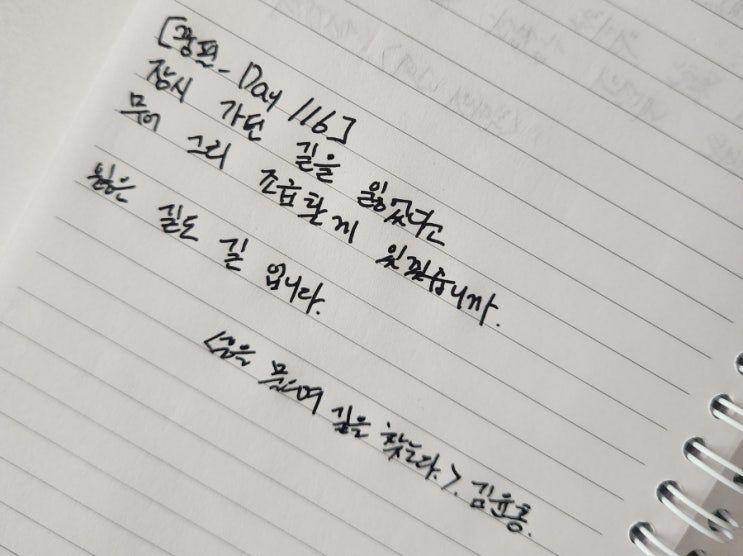 [꽝편 - Day 116]
잠시 가던 길을 잃었다고
무어 그리 조급할 게 있겠습니까.
잃은 길도 길 입니다.
<섬을 물어 길을 찾는다.>. 김윤홍.